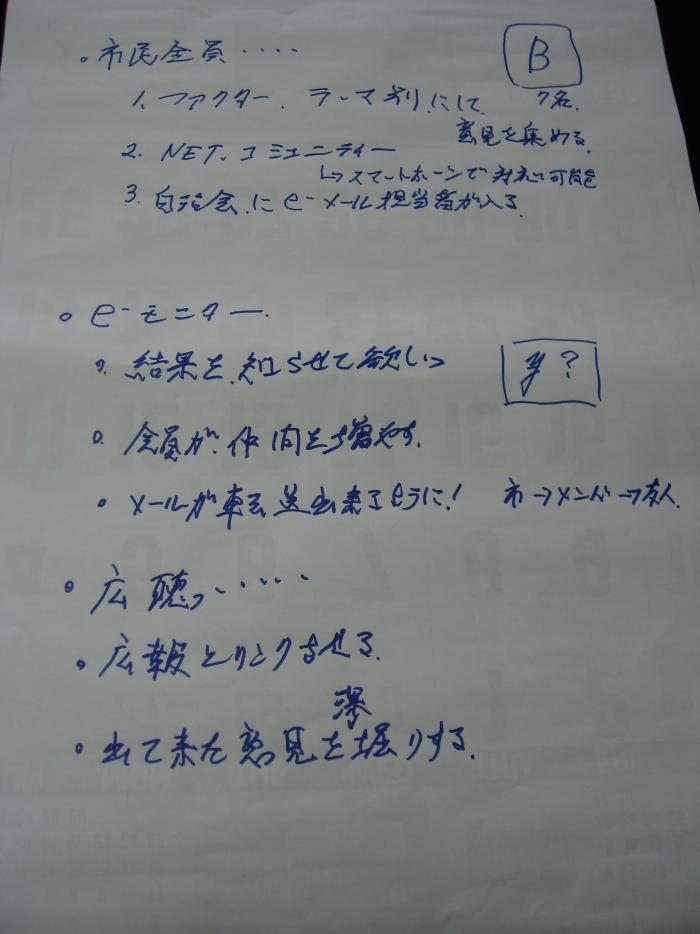 。市民全員‥‥
B
1. ファクター、テーマ別にして 7名.
意見を集める.
2. NET.コミュニティー
↳スマートホーンで対応可能
3. 自治会.にe-メール担当者が入る.
。e-モニター.
。結果を.知らせて欲しい
y?
。会員が.仲間を増やす.
・メールが転送出来るように! 市→メンバ→友人.
・広聴‥‥‥
・広報とリンクさせる.
深
・出て来た意見を堀りする.